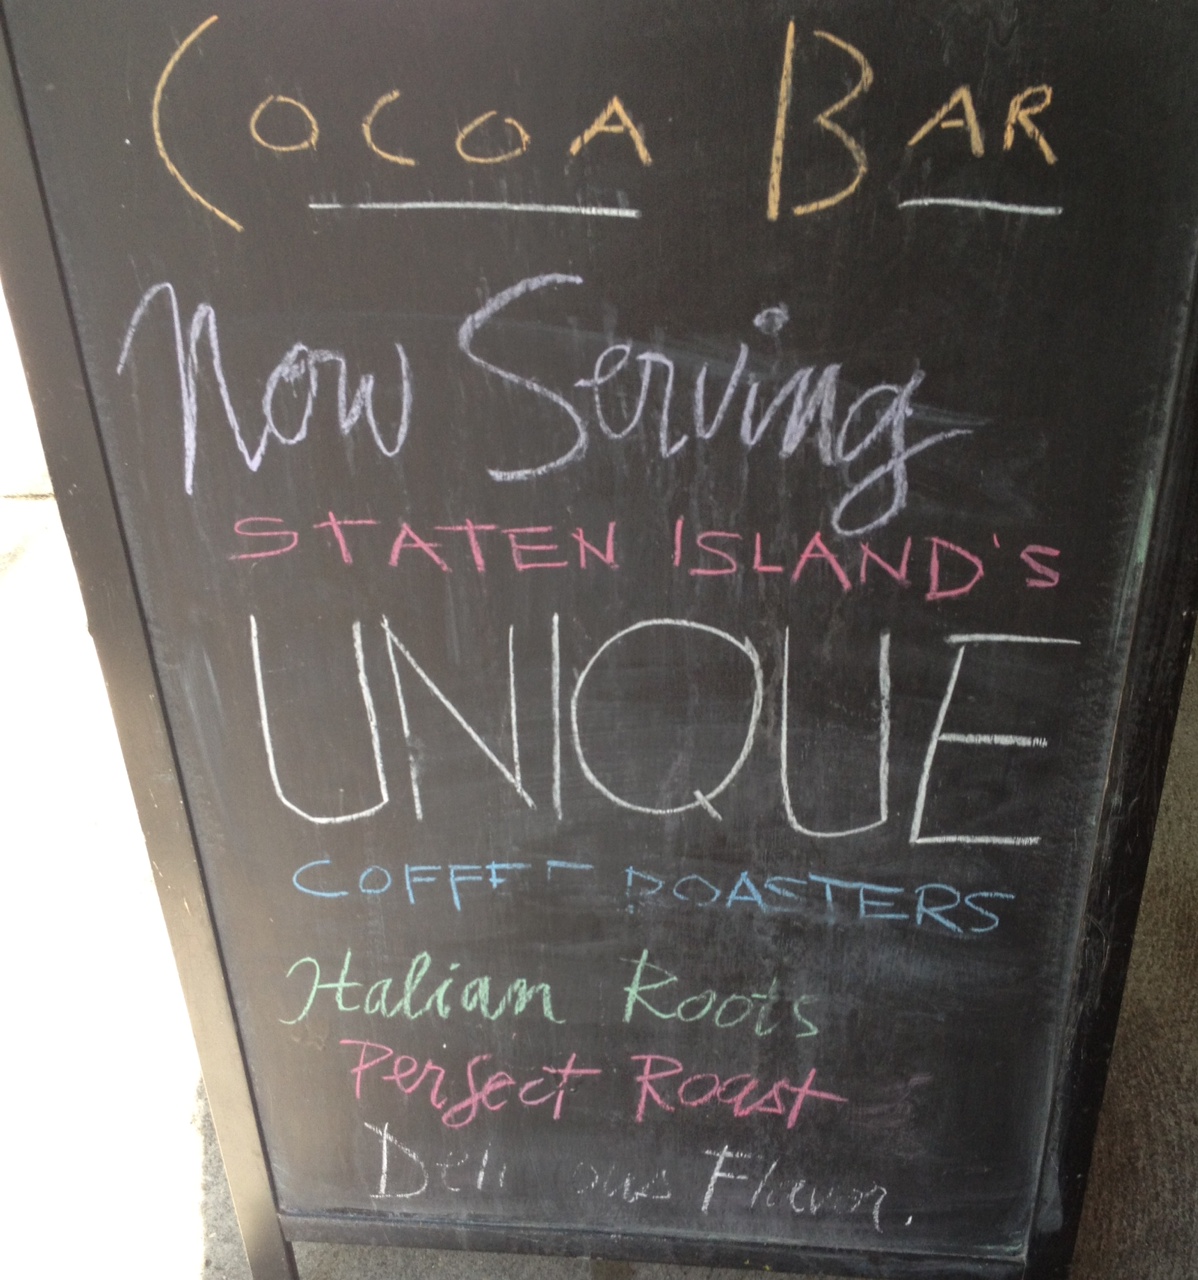 COCOA BAR
Now Serving
STATEN ISLAND'S
UNIQUE
COFFEE ROASTERS
Italian Roots
Perfect Roast
Delicious Flavor.